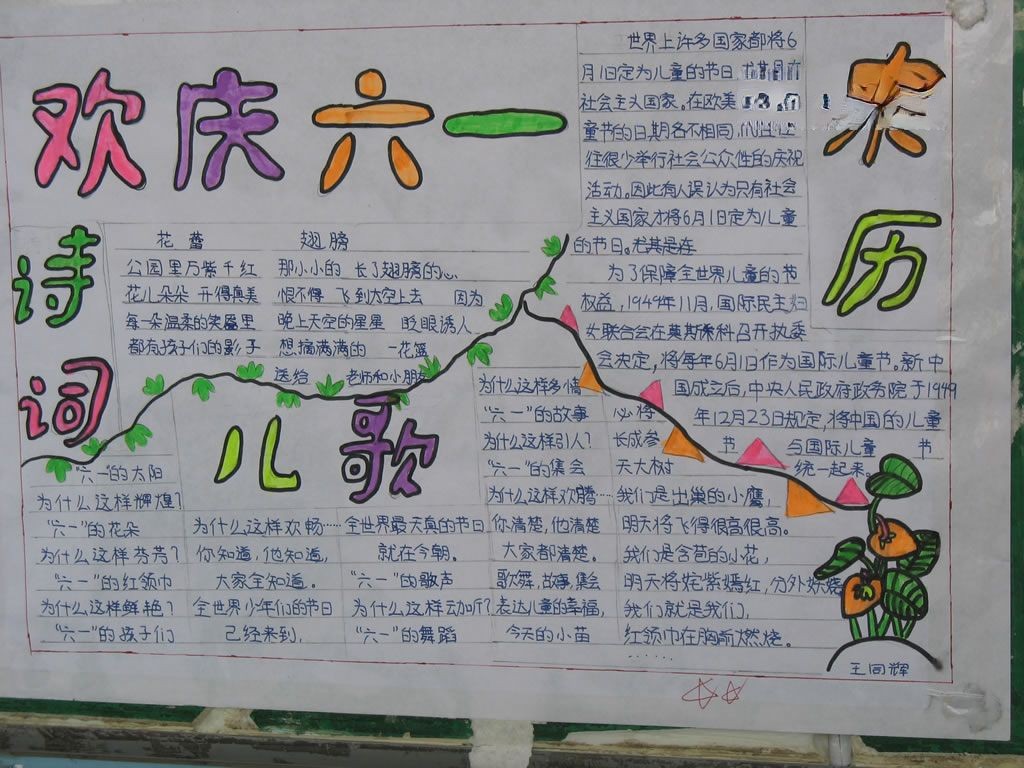 欢庆六一
来历
世界上许多国家都将6
月1日定为儿童的节日
社会主义国家。在欧美
童节的日期各不相同,
往很少举行社会公众性的庆祝
活动。因此有人误认为只有社会
主义国家才将6月1日定为儿童
的节日。尤其是连
为了保障全世界儿童的节
权益,1949年11月,国际民主妇
女联合会在莫斯科召开执委
会决定,将每年6月1日作为国际儿童节。新中
国成立后,中央人民政府政务院于1949
年12月23日规定,将中国的儿童
节 与国际儿童 节
统一起来。
诗词
花蕾
公园里万紫千红
花儿朵朵 开得真美
每一朵温柔的笑靥里
都有孩子们的影子
翅膀
那小小的 长了翅膀的心
恨不得 飞到太空上去 因为
晚上天空的星星 眨眼诱人
想摘满满的 一花篮
送给 老师和小朋友
儿歌
“六一”的太阳
为什么这样辉煌?
“六一”的花朵
为什么这样芬芳?
“六一”的红领巾
为什么这样鲜艳?
“六一”的孩子们
为什么这样欢畅…
你知道,他知道,
大家全知道。
全世界少年们的节日
已经来到,
全世界最天真的节日
就在今朝。
“六一”的歌声
为什么这样动听?
“六一”的舞蹈
为什么这样多情
“六一”的故事
为什么这样引人?
“六一”的集会
为什么这样欢腾…
你清楚,他清楚
大家都清楚。
歌舞,故事,集会
表达儿童的幸福,
今天的小苗
必将
长成参
天大树
我们是出巢的小鹰,
明天将飞得很高很高。
我们是含苞的小花,
明天将姹紫嫣红,分外妖娆
我们就是我们,
红领巾在胸前燃烧。
……
王同辉